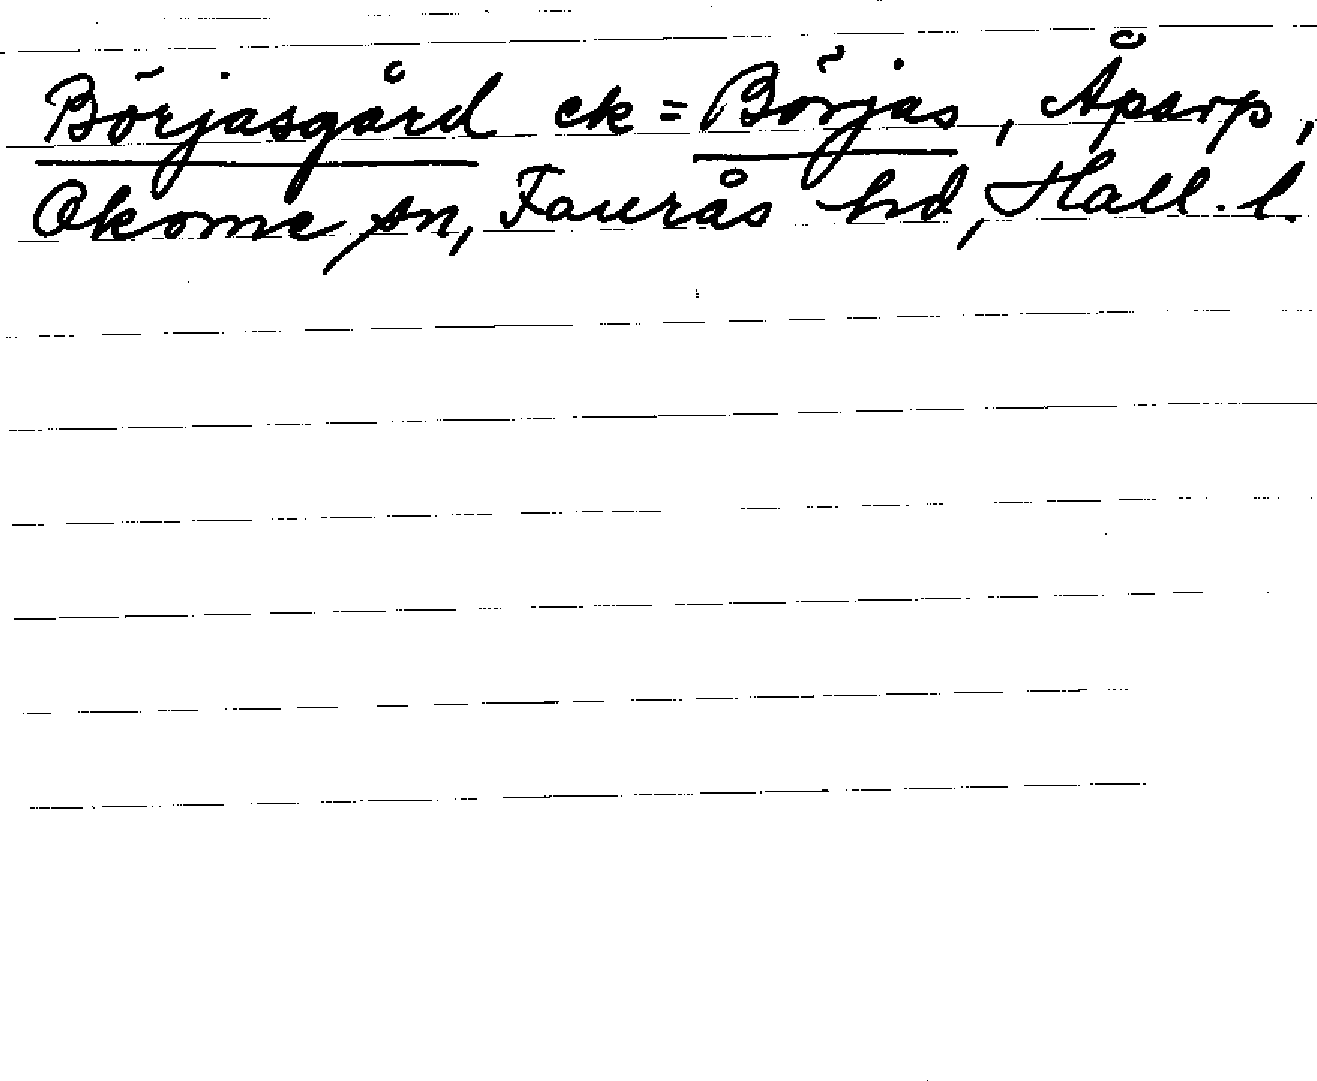 Börjasgård ek = Börjas, Åparp,
Okome sn, Faurås hd, Hall. l.